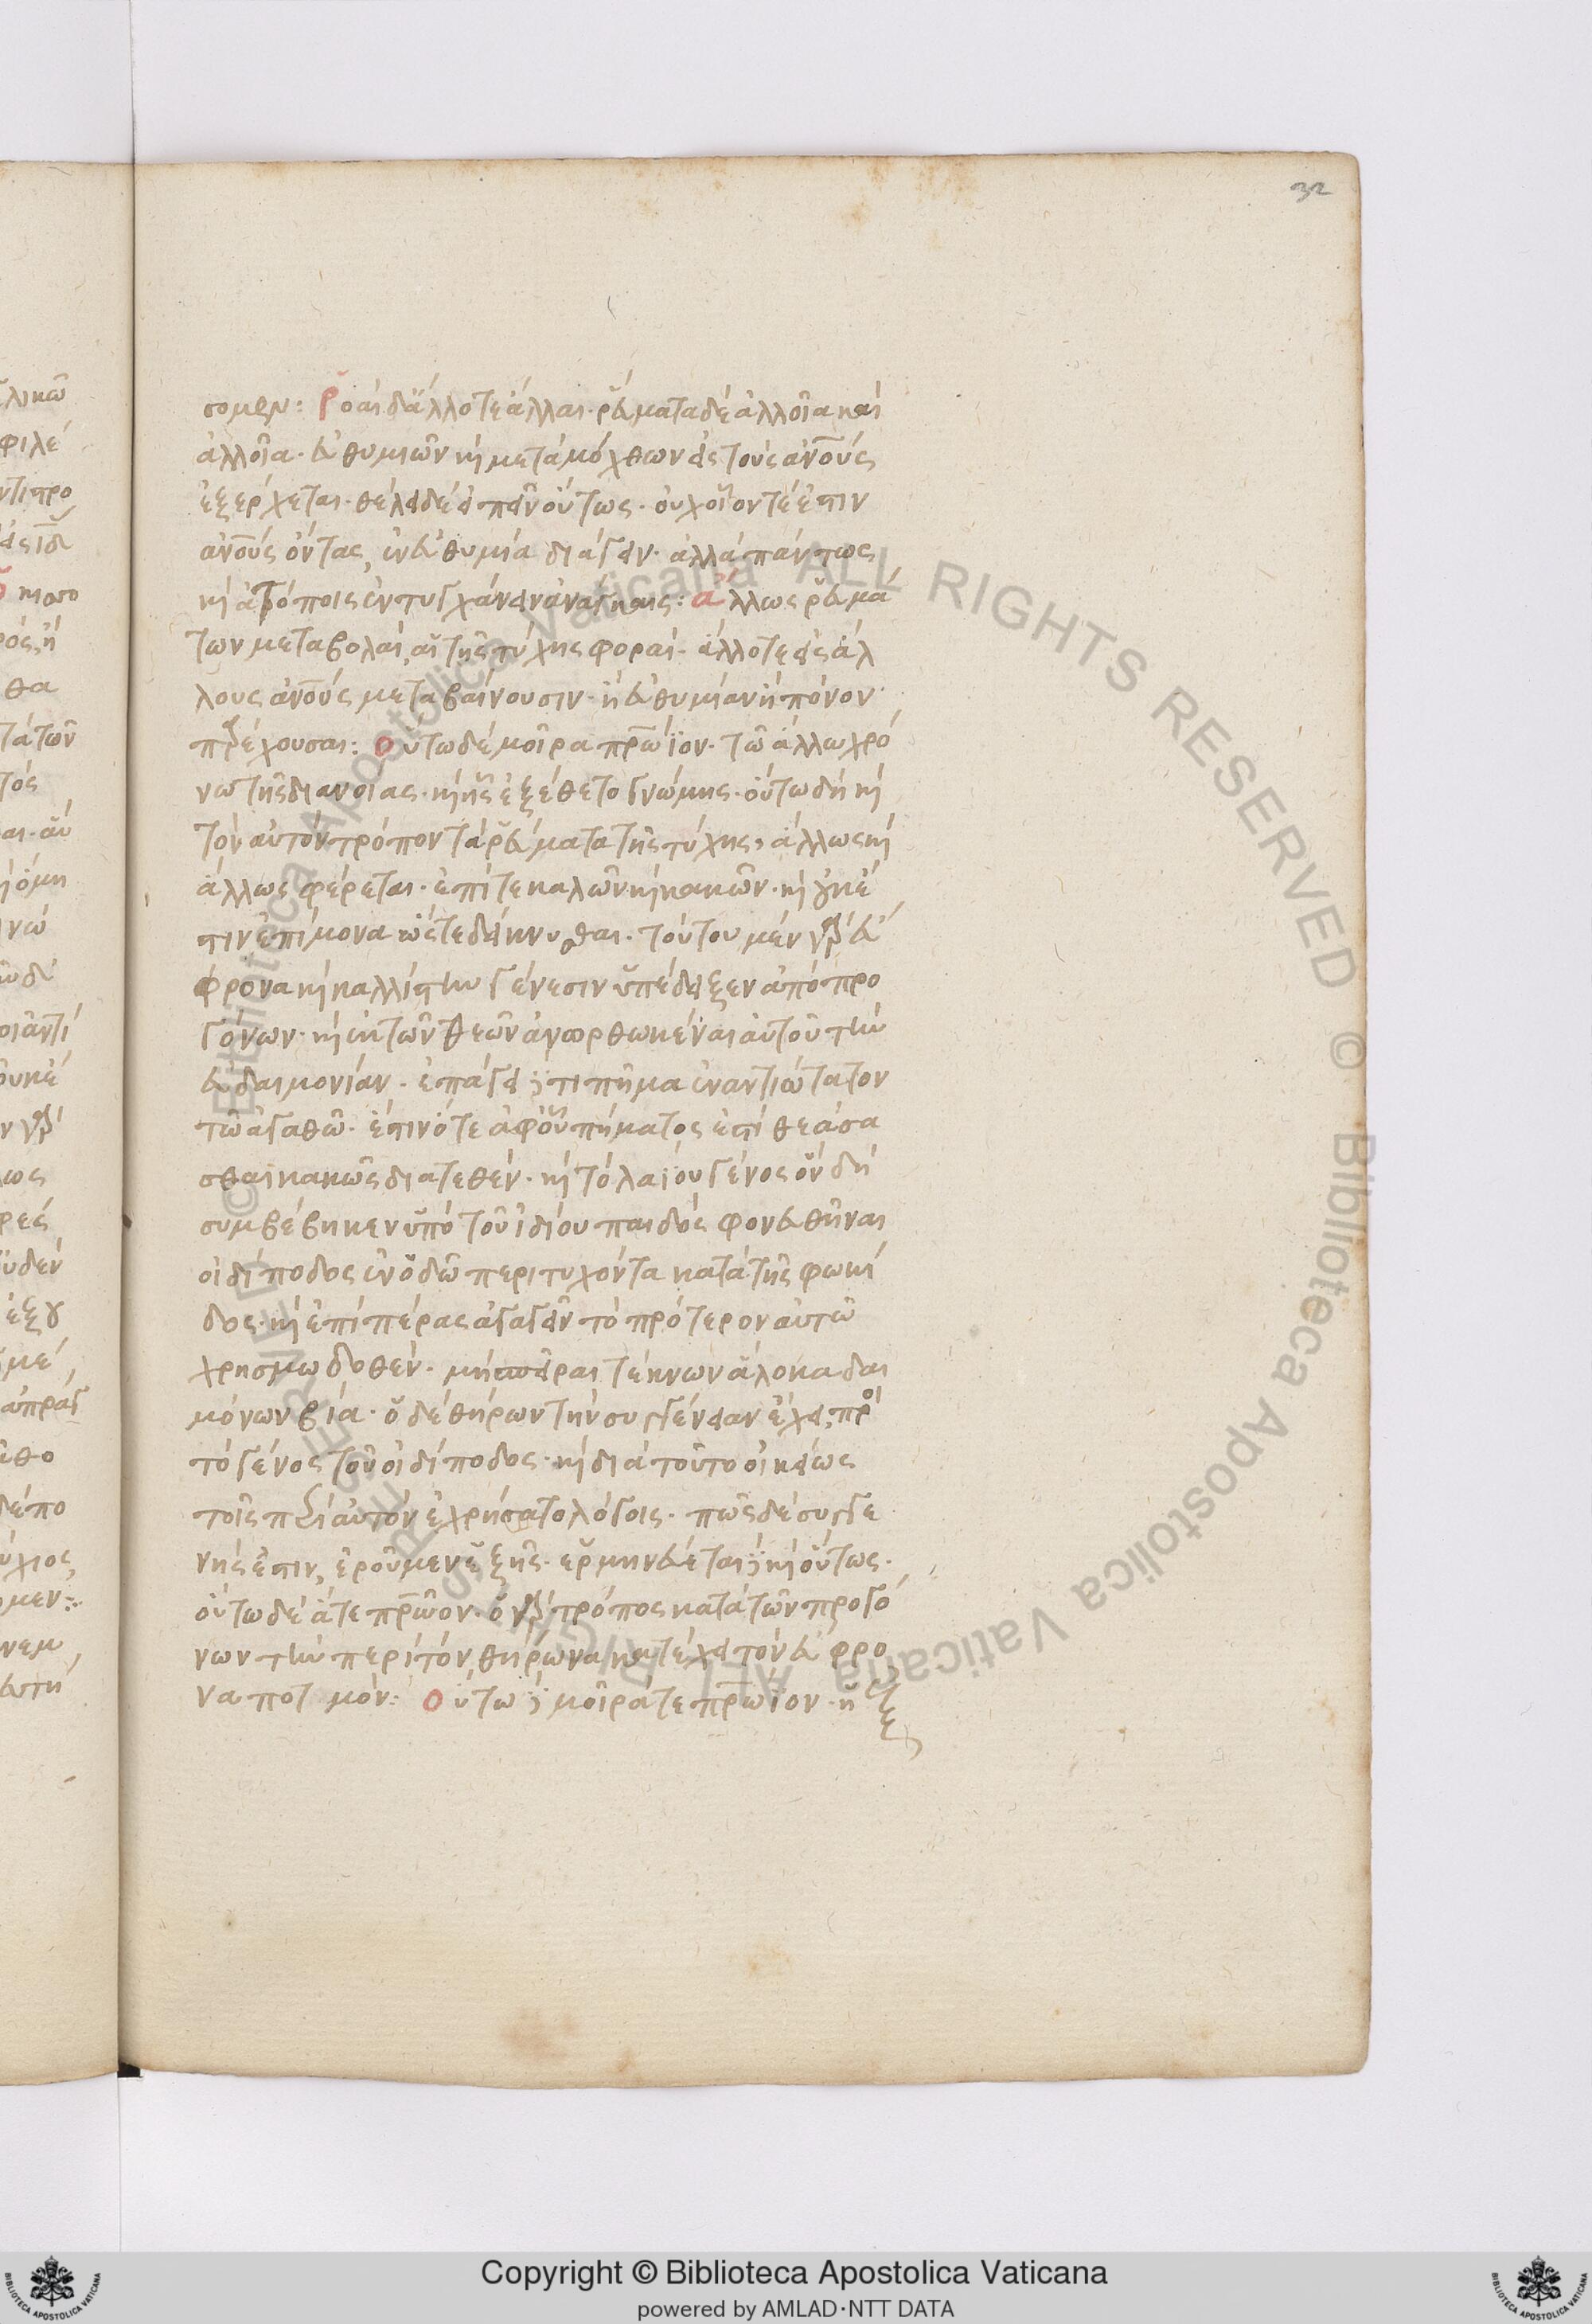 32
σομεν: Ῥοαὶ δ' ἄλλοτε ἄλλαι· ῥεύματα δὲ ἀλλοῖα καὶ
ἀλλοῖα· εὐθυμιῶν κὶ μετὰ μόχθων εἰς τοὺς ἀνους
ἐξέρχεται· θέλει δὲ εἰπεῖν οὕτως· οὐχ οἷον τέ ἐστιν
ἀνους ὄντας, ἐν εὐθυμία διάγειν· ἀλλὰ πάντως
κὶ ἀτόποις ἐντυγχάνειν ἀνάγκαις: ἄλλως ῥευμά
των μεταβολαὶ, αἱ τῆς τύχης φοραί· ἄλλοτε εἰς ἀλ
λους ἀνους μεταβαίνουσιν· ἢ εὐθυμίαν ἢ πόνον·
παρέχουσαι: οὕτω δὲ μοῖρα πρώϊον· τῶ ἄλλω χρό
νω τῆς διανοίας· κὶ ἧς ἐξέθετο γνώμης· οὕτω δὴ κὶ
τὸν αὐτὸν τρόπον τὰ ῥεύματα τῆς τύχης, ἄλλως κὶ
ἄλλως φέρεται· ἐπί τε καλῶν κὶ κακῶν· κὶ οὐκ έ
στιν ἐπίμονα ὥστε δείκνυσθαι· τούτου μὲν γὰρ εὔ
φρονα κὶ καλλίστην γένεσιν ὑπέδειξεν ἀπὸ προ
γόνων· κὶ ἐκ τῶν θεῶν ἀνορθωκέναι αὐτοῦ τὴν
εὐδαιμονίαν· ἐπάγει δέ τι πῆμα ἐναντιώτατον
τῶ ἀγαθῶ· ἔστιν ὅτε ἀφ' οὗ πήματος ἐστὶ θεάσα
σθαι κακῶς διατεθέν· κὶ τὸ λαΐου γένος ὃν δὴ
συμβέβηκεν ὑπὸ τοῦ ἰδίου παιδὸς φονευθῆναι
οἰδίποδος ἐν ὁδῶ περιτυχόντα κατὰ τῆς φωκί
δος· κὶ ἐπὶ πέρας ἀγαγεῖν τὸ πρότερον αὐτῶ
χρησμωδοθέν· μὴ σπεῖραι τέκνων ἄλοκα δαι
μόνων βία· ὁ δὲ θήρων τὴν συγγένειαν ἔχει, πρὸς
τὸ γένος τοῦ οἰδίποδος· κὶ διὰ τοῦτο οἰκείως
τοῖς περὶ αὐτὸν ἐχρήσατο λόγοις· πῶς δὲ συγγε
νής ἐστιν, ἐροῦμεν ἑξῆς· ἑρμηνεύεται δὲ κὶ οὕτως·
οὕτω δὲ ἅτε πρῶον· ὁ γὰρ τρόπος κατὰ τῶν προγό
νων τὴν περὶ τὸν θήρωνα κατέχει τὸν εὔφρο
να ποτμόν: οὕτω δὲ μοῖρά τε πρώϊον· ἥ τε